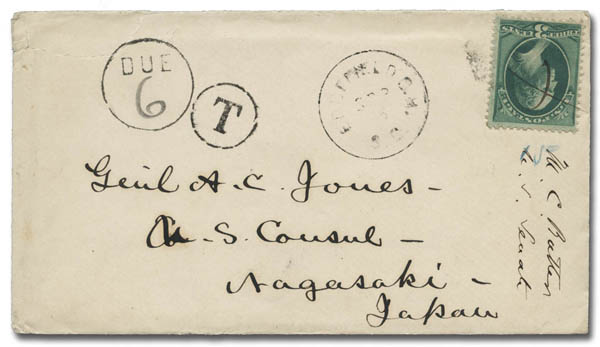 DUE
6
T
Genl A. C. Jones -
U. S. Consul -
Nagasaki -
Japan
M. C. Butler
U. S. Senate